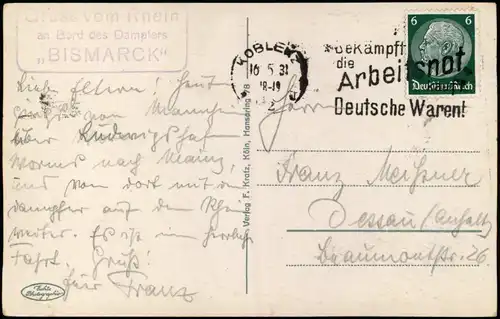 Gruss vom Rhein
an Bord des Dampfers
„BISMARCK"
KOBLENZ
10.5.31
18-19
2
Bekämpft
die
Arbeitsnot
Deutsche Waren!
6 6
Deutsches Reich
Liebe Eltern! Heut
ging's von Mannheim
über Ludwigshafen
Worms nach Mainz,
und von dort mit dem
Dampfer auf dem Rhein
weiter. Es ist eine herrliche
Fahrt. Gruß!
Euer Franz
Echte
Photographie
Verlag F. Kratz, Köln, Hansaring 78
Herrn
Franz Meißner
Dessau (Anhalt)
Beaumontstr. 26